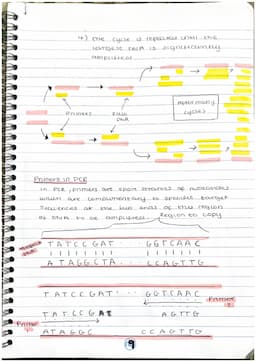 4) The cycle is repeated until the
target DNA is significantly
amplified
primers
DNA
After many
cycles
Primers in PCR
In PCR, primers are short strands of nucleotides
which are complimentary to specific target
sequences at the two ends of the region
of DNA to be amplified.
Region to copy
TATCCGAT
GGTCAAC
ATAGGCTA
CCAGTTG
TATCCGAT
GGTCAAC
Primer
TATCCGAT
AGTTG
Primer
ATAGGC
CCAGTTG
9